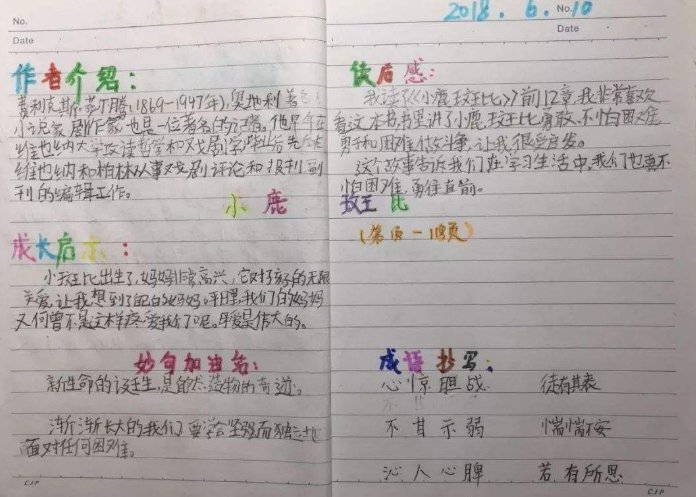 No.
Date
作者介绍:
费利克斯·萨尔腾,(1869-1947年),奥地利著名
小说家,剧作家,也是一位著名的记者。他早年在
维也纳大学攻读哲学和戏剧学,毕业后先后在
维也纳和柏林从事戏剧评论和报刊副
刊的编辑工作。
小鹿
成长启示:
小班比出生了,妈妈非常高兴,它对孩子的无限
关爱,让我想到了自己的妈妈。平日里,我们的妈妈
又何曾不是这样疼爱我们呢。母爱是伟大的。
妙句加油站:
新生命的诞生,是自然造物的奇迹。
渐渐长大的我们要学会坚强而独立地
面对任何困难。
2018.6.10
No.
Date
读后感:
我读了《小鹿班比》前12章,我非常喜欢
看这本书,书里讲了小鹿班比勇敢、不怕困难
勇于和困难做斗争,让我很受启发。
这个故事告诉我们在学习生活中,我们也要不
怕困难,勇往直前。
班比
成语抄写:
心惊胆战 徒有其表
不甘示弱 惴惴不安
沁人心脾 若有所思